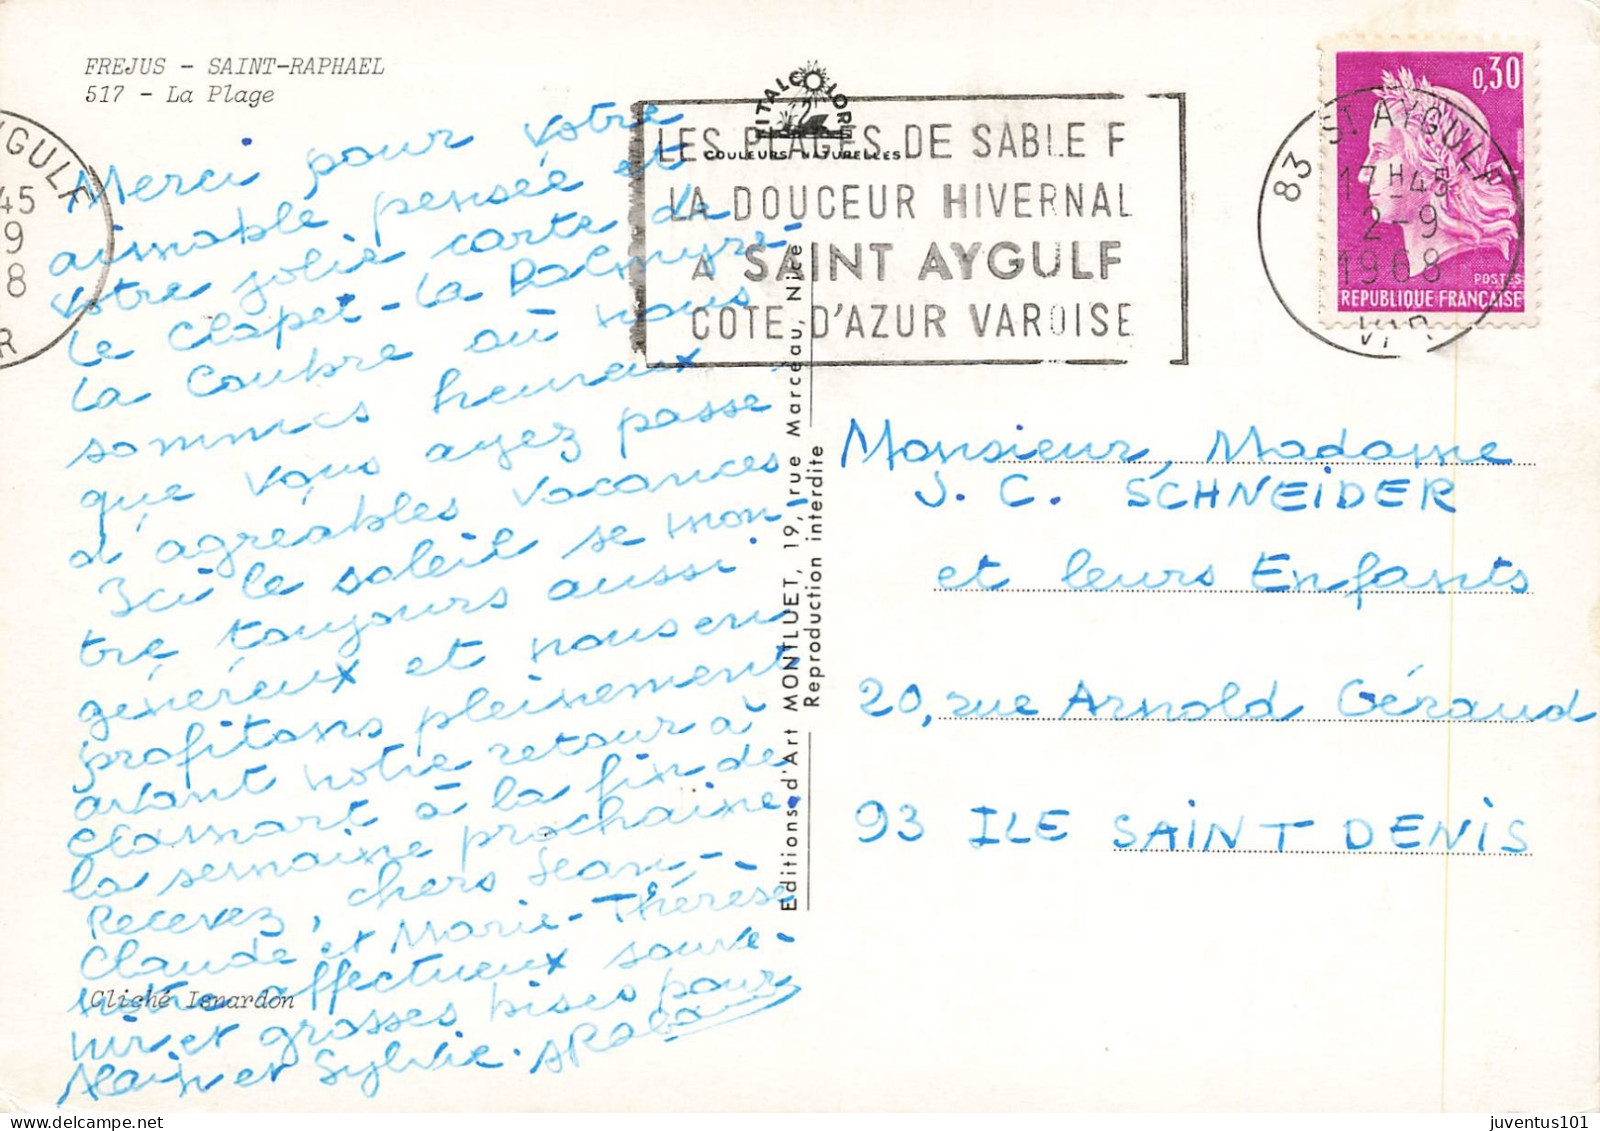 FREJUS - SAINT-RAPHAEL
517 - La Plage
Merci pour votre
aimable pensée et
votre jolie carte de
Le Clapet - La Palmyre -
La Coubre où nous
sommes heureux
que vous ayez passé
d'agréables vacances
Ici le soleil se mon-
tre toujours aussi
généreux et nous en
profitons pleinement
avant notre retour à
Clamart à la fin de
la semaine prochaine.
Recevez, chers Jean-
Claude et Marie-Thérèse
notre affectueux souve-
nir et grosses bises pour
Alain et Sylvie.
Cliché Isnardon
ITALCOLORE
COULEURS NATURELLES
LES PLAGES DE SABLE F
LA DOUCEUR HIVERNAL
A SAINT AYGULF
COTE D'AZUR VAROISE
Editions d'Art MONTLUET, 19, rue Marceau, Nice
Reproduction interdite
0,30
POSTES
REPUBLIQUE FRANÇAISE
83 ST AYGULF
17H45
2-9
1968
VAR
YGULF
45
9
8
R
Monsieur, Madame
J. C. SCHNEIDER
et leurs Enfants
20, rue Arnold Géraud
93 ILE SAINT DENIS
juventus101